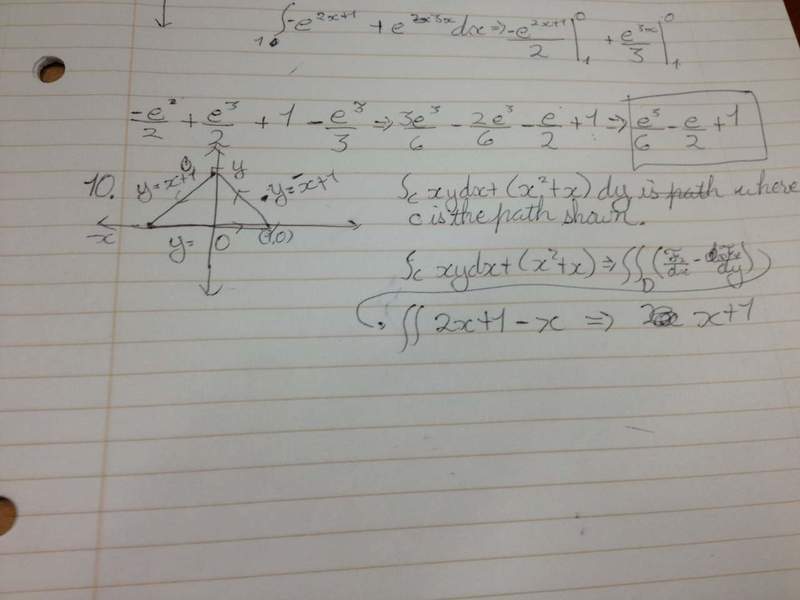 1 ∫ 0 -e^{2x+1} + e^{3x} dx ⇒ -e^{2x+1}/2 |_1^0 + e^{3x}/3 |_1^0
-e²/2 + e³/2 + 1 - e³/3 ⇒ 3e³/6 - 2e³/6 - e/2 + 1 ⇒ e³/6 - e/2 + 1
10. y=x+1 y y=-x+1 ∫_C xydx+(x²+x)dy is path where
-x y= 0 (1,0) C is the path shown.
∫_C xydx+(x²+x) ⇒ ∬_D ( /dx - /dy )
∬ 2x+1-x ⇒ x+1